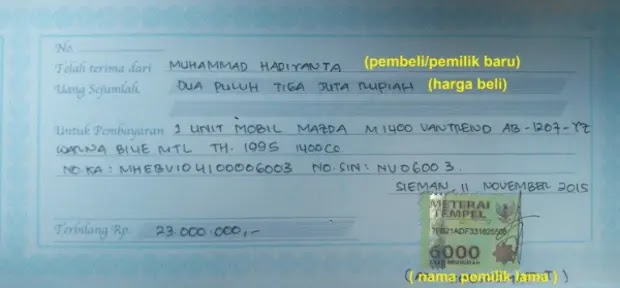 No.
Telah terima dari MUHAMMAD HADIYANTA (pembeli/pemilik baru)
Uang Sejumlah. DUA PULUH TIGA JUTA RUPIAH (harga beli)
Untuk Pembayaran 1 UNIT MOBIL MAZDA M1400 VANTREND AB-1207-YZ
WARNA BIUE MTL TH. 1995 1400CC
NO KA : MHEBV104100006003 NO.SIN: NU06003.
SIEMAN, 11 NOVEMBER 2015
METERAI
TEMPEL
Terbilang Rp. 23.000.000,-
6000
( nama pemilik lama )